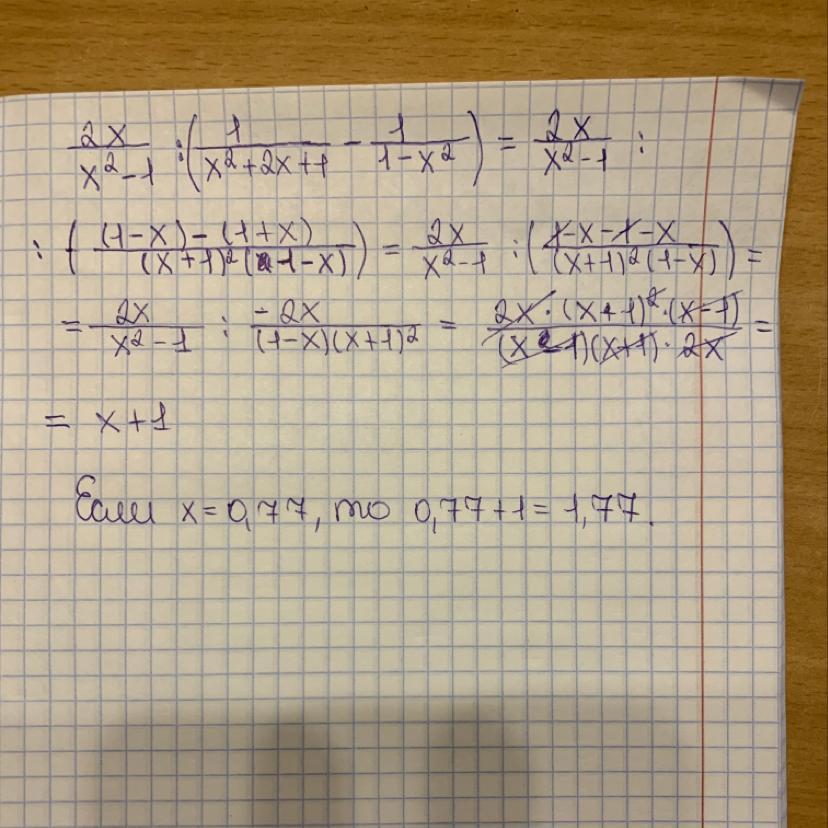 2x/(x²-1) : (1/(x²+2x+1) - 1/(1-x²)) = 2x/(x²-1) :
: (((1-x)-(1+x))/((x+1)²(1-x))) = 2x/(x²-1) : ((1-x-1-x)/((x+1)²(1-x))) =
= 2x/(x²-1) : -2x/((1-x)(x+1)²) = (2x·(x+1)²·(x-1))/((x-1)(x+1)·2x) =
= x+1
Если x=0,77, то 0,77+1=1,77.